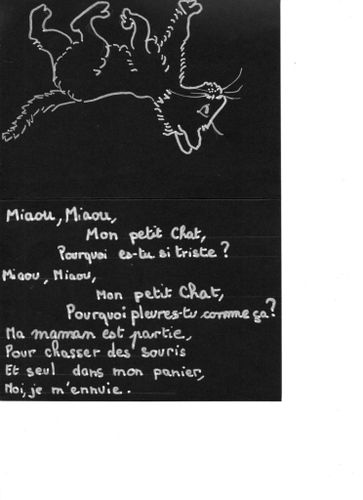 Miaou, Miaou,
Mon petit Chat,
Pourquoi es-tu si triste ?
Miaou, Miaou,
Mon petit Chat,
Pourquoi pleures-tu comme ça ?
Ma maman est partie,
Pour chasser des souris
Et seul dans mon panier,
Moi, je m'ennuie.